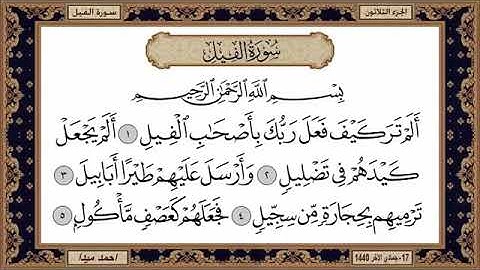 سورة الفيل
الجزء الثلاثون
سُورَةُ الفِيلِ
بِسْمِ اللَّهِ الرَّحْمَٰنِ الرَّحِيمِ
أَلَمْ تَرَ كَيْفَ فَعَلَ رَبُّكَ بِأَصْحَٰبِ الْفِيلِ ١ أَلَمْ يَجْعَلْ
كَيْدَهُمْ فِي تَضْلِيلٍ ٢ وَأَرْسَلَ عَلَيْهِمْ طَيْرًا أَبَابِيلَ ٣
تَرْمِيهِم بِحِجَارَةٍ مِّن سِجِّيلٍ ٤ فَجَعَلَهُمْ كَعَصْفٍ مَّأْكُولٍ ٥
17-جمادى الآخر 1440